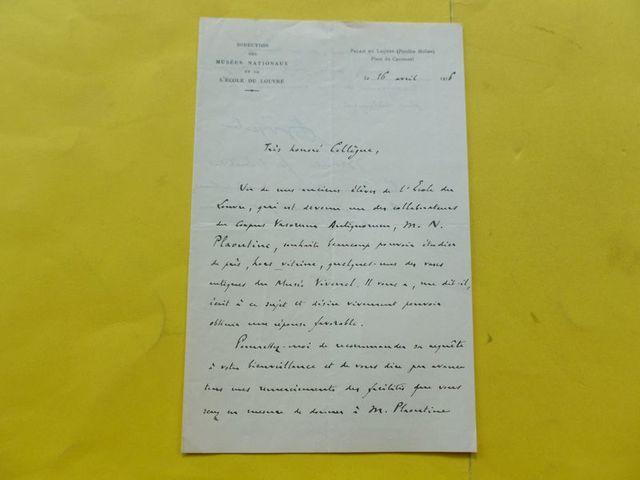 DIRECTION
DES
MUSÉES NATIONAUX
ET DE
L'ÉCOLE DU LOUVRE
Palais du Louvre (Pavillon Mollien)
Place du Carrousel
le 16 avril
Très honoré Collègue,
Un de mes anciens élèves de l'École du
Louvre, qui est devenu un des collaborateurs
du Corpus Vasorum Antiquorum, M. N.
Plaoutine, souhaite beaucoup pouvoir étudier
de près, hors vitrine, quelques-uns des vases
antiques du Musée Vivenel. Il vous a, me dit-il,
écrit à ce sujet et désire vivement pouvoir
obtenir une réponse favorable.
Permettez-moi de recommander sa requête
à votre bienveillance et de vous dire par avance
tous mes remerciements des facilités que vous
serez en mesure de donner à M. Plaoutine